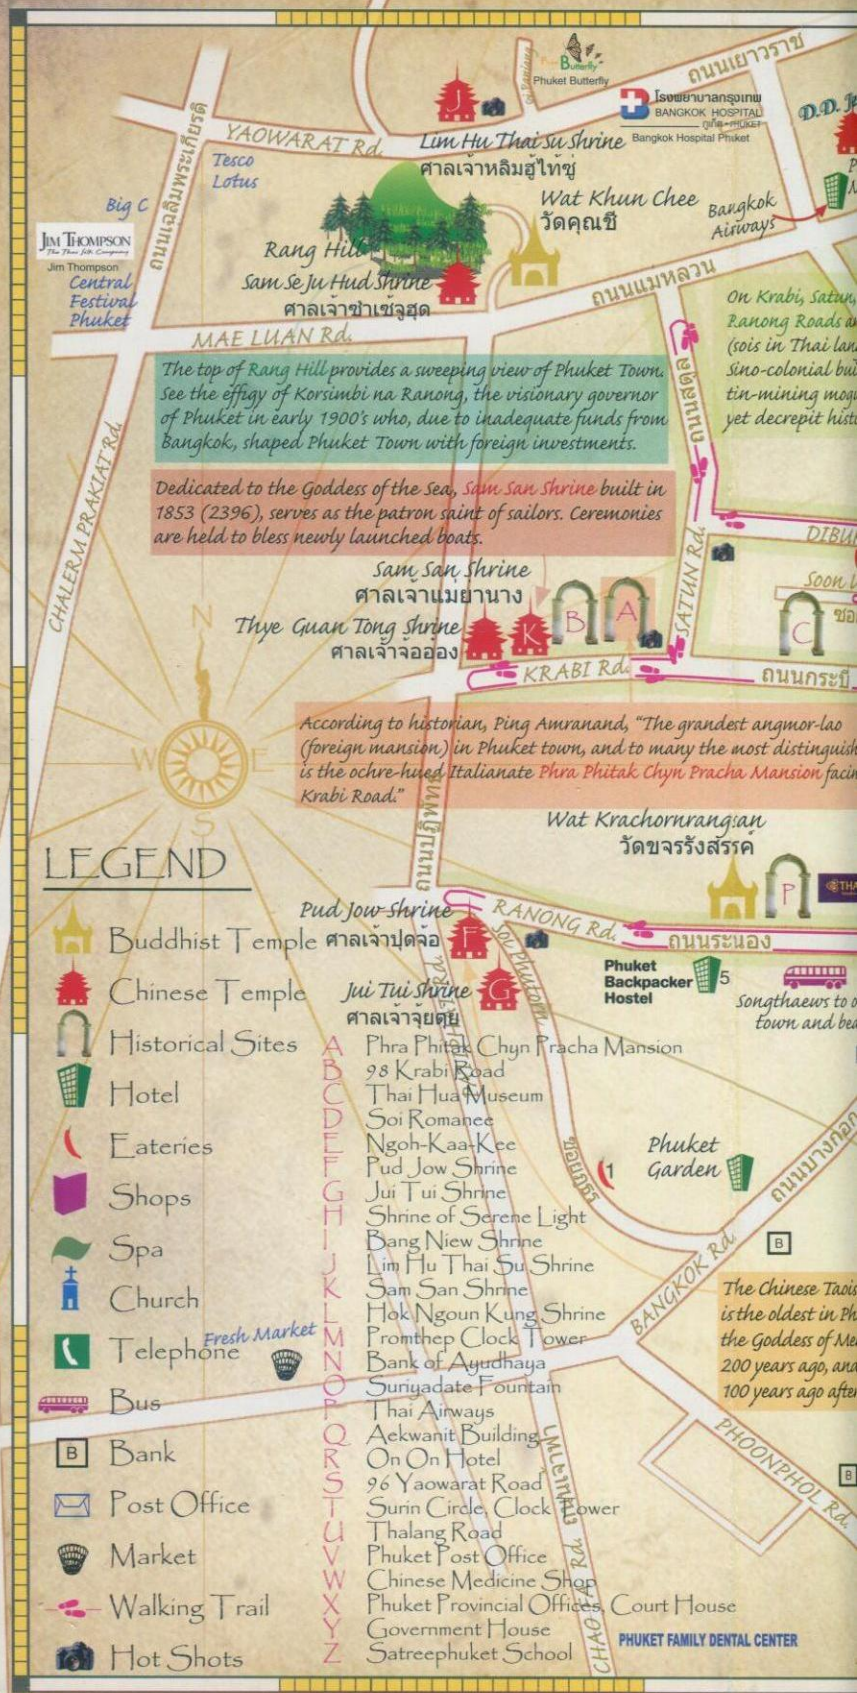 ถนนเยาวราช
Butterfly
Phuket Butterfly
โรงพยาบาลกรุงเทพ
BANGKOK HOSPITAL
ภูเก็ต - PHUKET
Bangkok Hospital Phuket
D.D.
J
YAOWARAT Rd.
Lim Hu Thai Su Shrine
ศาลเจ้าหลิมฮู้ไท้ซู่
ถนนเฉลิมพระเกียรติ
Tesco
Lotus
Big C
JIM THOMPSON
The Thai Silk Company
Jim Thompson
Central
Festival
Phuket
Wat Khun Chee
วัดคุณชี
Bangkok
Airways
Rang Hill
Sam Se Ju Hud Shrine
ศาลเจ้าซำเซ้จูฮุด
ถนนแม่หลวน
MAE LUAN Rd.
On Krabi, Satun,
Ranong Roads
(sois in Thai
Sino-colonial
tin-mining
yet decrepit
The top of Rang Hill provides a sweeping view of Phuket Town.
See the effigy of Korsimbi na Ranong, the visionary governor
of Phuket in early 1900's who, due to inadequate funds from
Bangkok, shaped Phuket Town with foreign investments.
ถนนสตูล
CHALERM PRAKIAT Rd.
Dedicated to the Goddess of the Sea, Sam San Shrine built in
1853 (2396), serves as the patron saint of sailors. Ceremonies
are held to bless newly launched boats.
SATUN Rd.
DIBU
Soon
Sam San Shrine
ศาลเจ้าแม่ย่านาง
Thye Guan Tong Shrine
ศาลเจ้าจ้ออ๋อง
K
B
A
C
KRABI Rd.
ถนนกระบี่
N
W
E
S
According to historian, Ping Amranand, “The grandest angmor-lao
(foreign mansion) in Phuket town, and to many the most distinguish
is the ochre-hued Italianate Phra Phitak Chyn Pracha Mansion facin
Krabi Road.”
ถนนปฏิพัทธ์
Wat Krachornrangsan
วัดขจรรังสรรค์
P
THA
LEGEND
Pud Jow Shrine
ศาลเจ้าปุดจ้อ
F
RANONG Rd.
ถนนระนอง
Soi Phutorn
Jui Tui Shrine
ศาลเจ้าจุ้ยตุ่ย
G
Phuket
Backpacker
Hostel
5
Songthaews to
town and
Buddhist Temple
Chinese Temple
Historical Sites
Hotel
Eateries
Shops
Spa
Church
Telephone
Fresh Market
Bus
B
Bank
Post Office
Market
Walking Trail
Hot Shots
A Phra Phitak Chyn Pracha Mansion
B 98 Krabi Road
C Thai Hua Museum
D Soi Romanee
E Ngoh-Kaa-Kee
F Pud Jow Shrine
G Jui Tui Shrine
H Shrine of Serene Light
I Bang Niew Shrine
J Lim Hu Thai Su Shrine
K Sam San Shrine
L Hok Ngoun Kung Shrine
M Promthep Clock Tower
N Bank of Ayudhaya
O Suriyadate Fountain
P Thai Airways
Q Aekwanit Building
R On On Hotel
S 96 Yaowarat Road
T Surin Circle, Clock Tower
U Thalang Road
V Phuket Post Office
W Chinese Medicine Shop
X Phuket Provincial Offices, Court House
Y Government House
Z Satreephuket School
ซอยภูธร
1
Phuket
Garden
ถนนบางกอก
B
BANGKOK Rd.
The Chinese Taois
is the oldest in Ph
the Goddess of Me
200 years ago, and
100 years ago after
PHOONPHOL Rd.
B
CHAO FAH Rd.
PHUKET FAMILY DENTAL CENTER